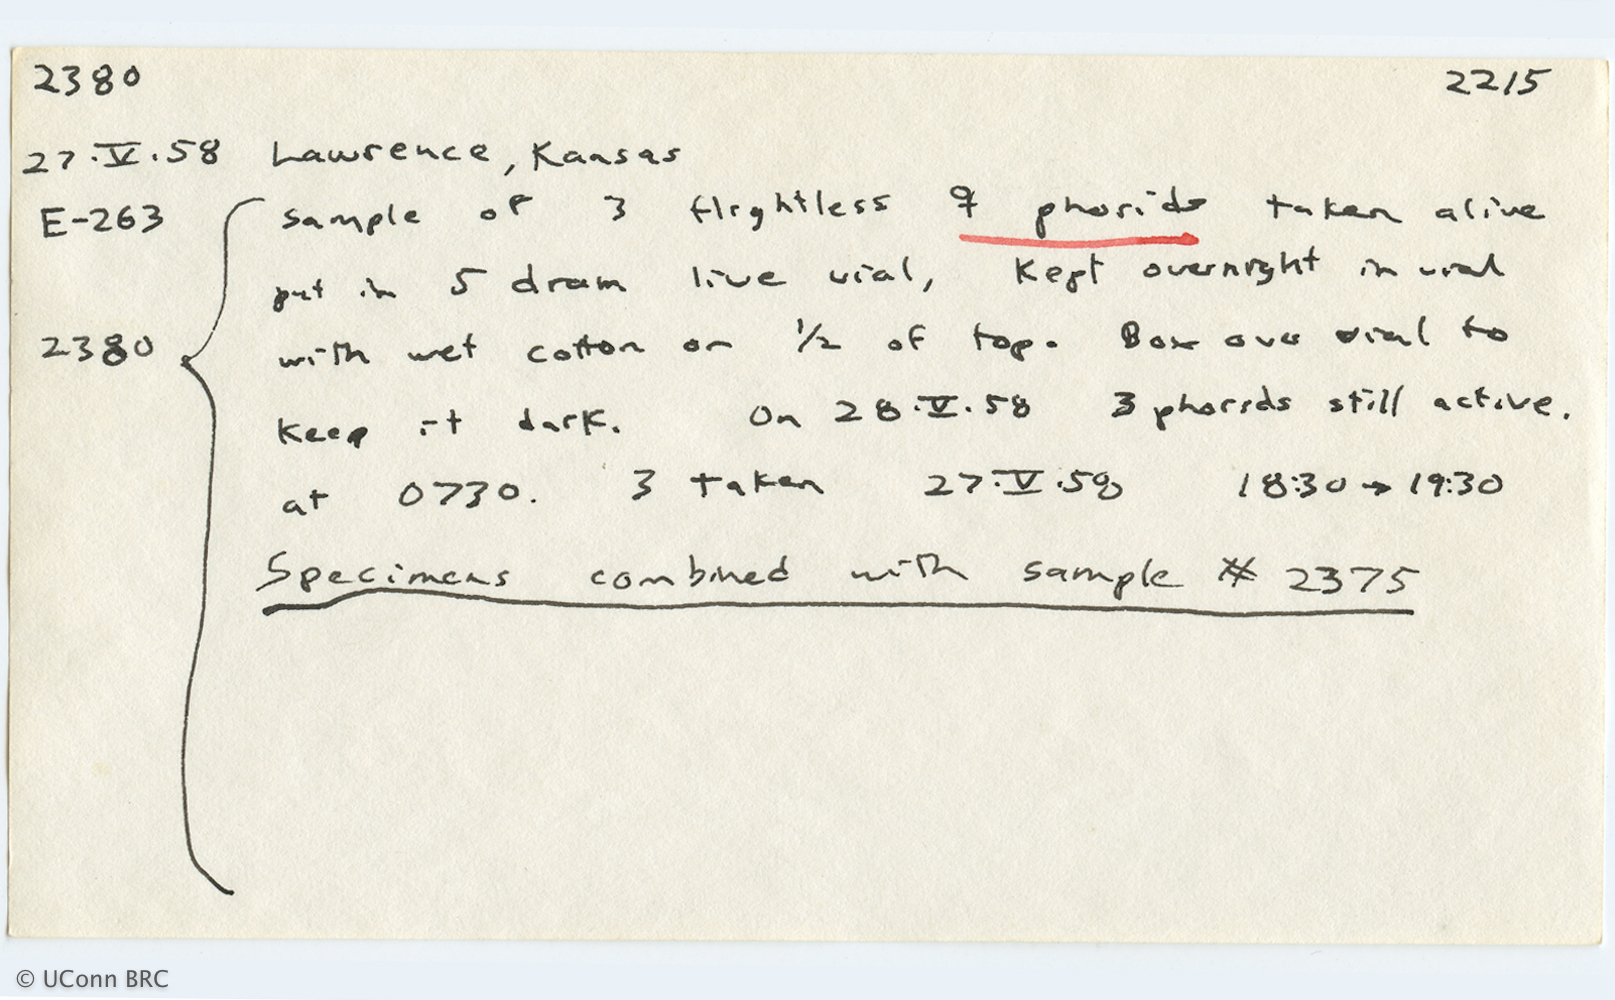 2380 2215
27.V.58 Lawrence, Kansas
E-263 sample of 3 flightless ♀ phorids taken alive
put in 5 dram live vial, Kept overnight in vial
2380 with wet cotton on 1/2 of top. Box over vial to
keep it dark. On 28.V.58 3 phorids still active.
at 0730. 3 taken 27.V.58 18:30 → 19:30
Specimens combined with sample # 2375
© UConn BRC